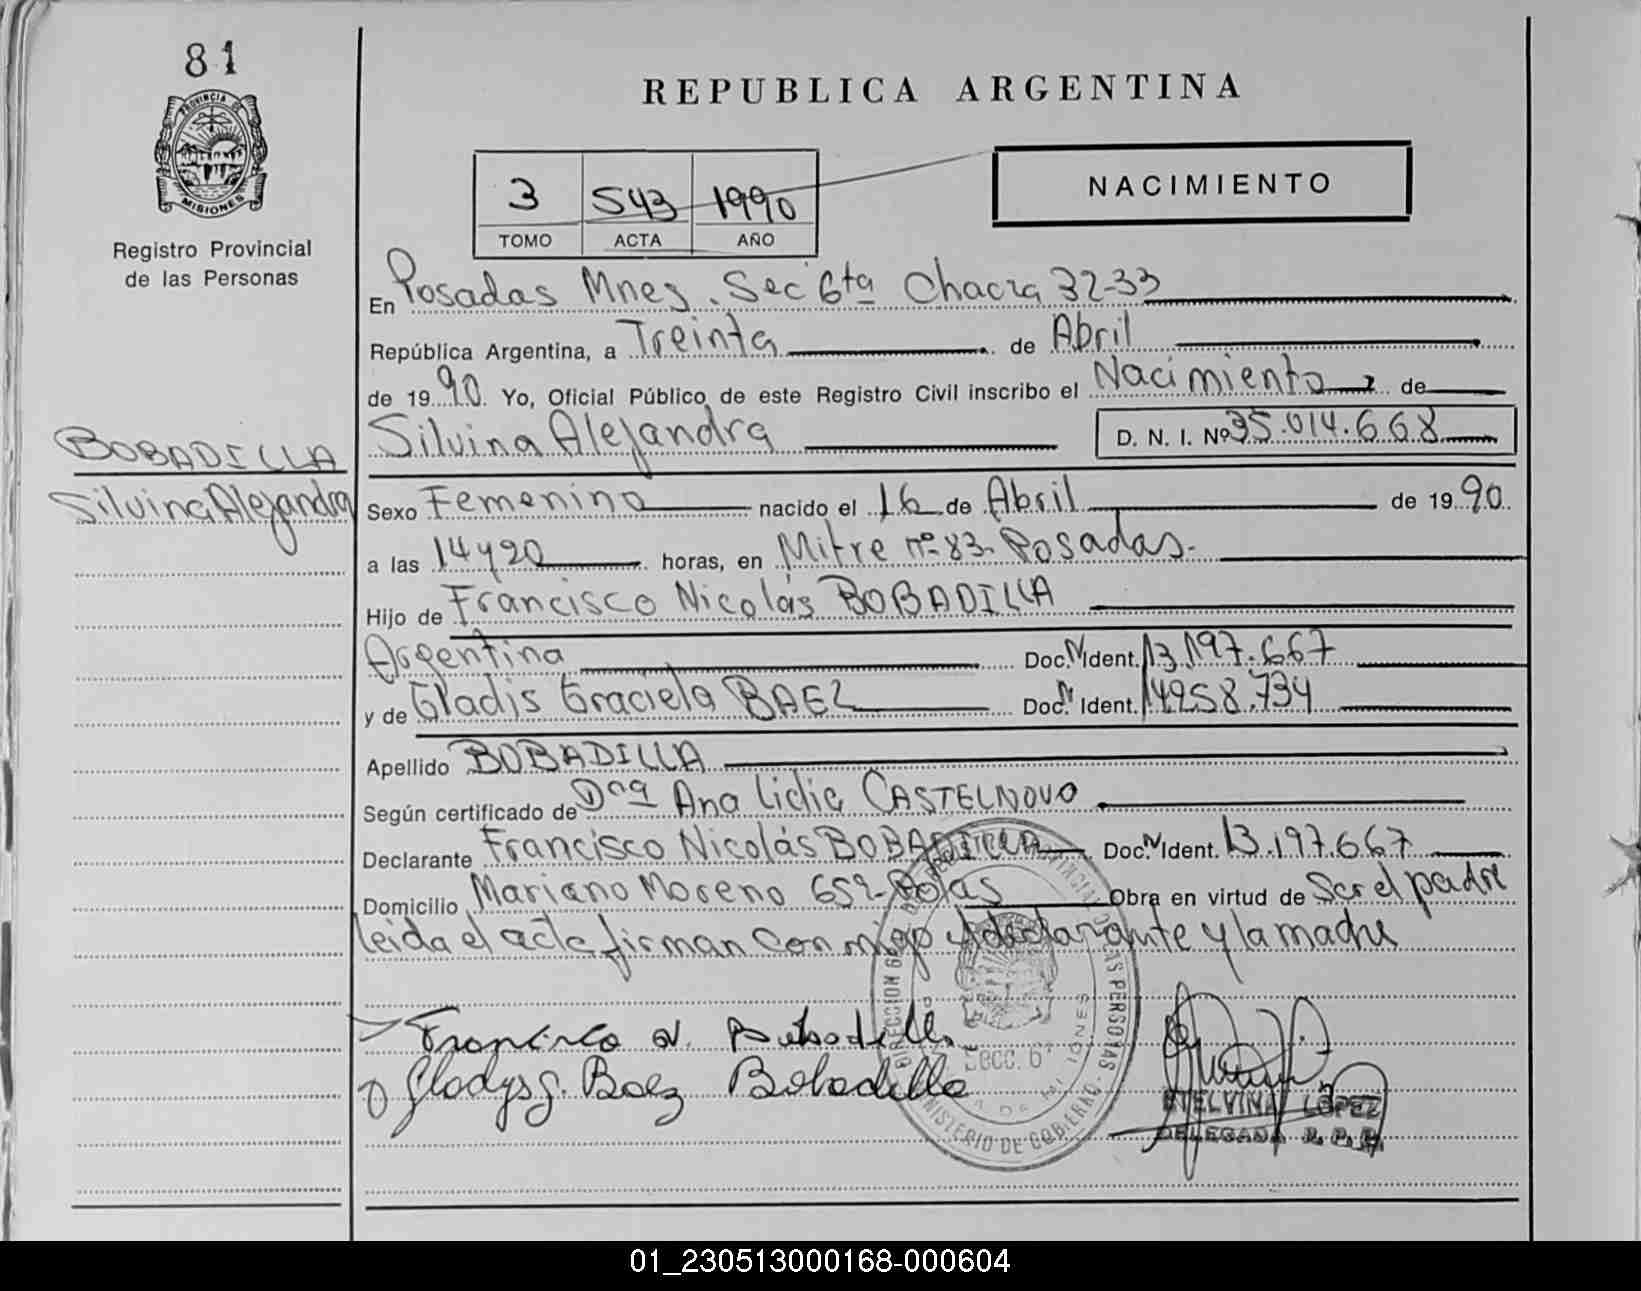 81
PROVINCIA DE
MISIONES
Registro Provincial
de las Personas
BOBADILLA
Silvina Alejandra
REPUBLICA ARGENTINA
3 543 1990
TOMO ACTA AÑO
NACIMIENTO
En Posadas Mnes. Sec 6ta Chacra 32-33
República Argentina, a Treinta de Abril
de 1990. Yo, Oficial Público de este Registro Civil inscribo el Nacimiento de
Silvina Alejandra D. N. I. Nº 35.014.668
Sexo Femenino nacido el 16 de Abril de 1990.
a las 14 y 20 horas, en Mitre nº 83. Posadas.
Hijo de Francisco Nicolás BOBADILLA
Argentina Doc. N Ident. 13.197.667
y de Gladis Graciela BAEZ Doc. N Ident. 14258.734
Apellido BOBADILLA
Según certificado de Dra Ana Lidia CASTELNOVO
Declarante Francisco Nicolás BOBADILLA Doc. N Ident. 13.197.667
Domicilio Mariano Moreno 652- Pdas Obra en virtud de Ser el padre
leida el acta firman conmigo declarante y la madre
Francisco N. Bobadilla
Gladys G. Baez Bobadilla
SECC. 6
MINISTERIO DE GOBIERNO
ETELVINA LOPEZ
DELEGADA R. P. P.
01_230513000168-000604